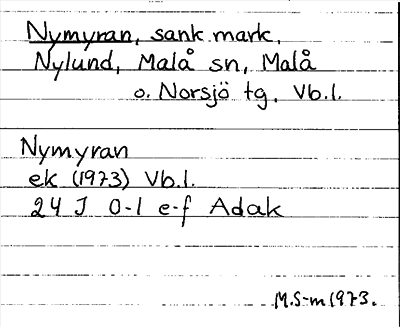 Nymyran, sank mark,
Nylund, Malå sn, Malå
o. Norsjö tg, Vb.l.
Nymyran
ek (1973) Vb.l.
24 J 0-1 e-f Adak
M.S-m 1973.